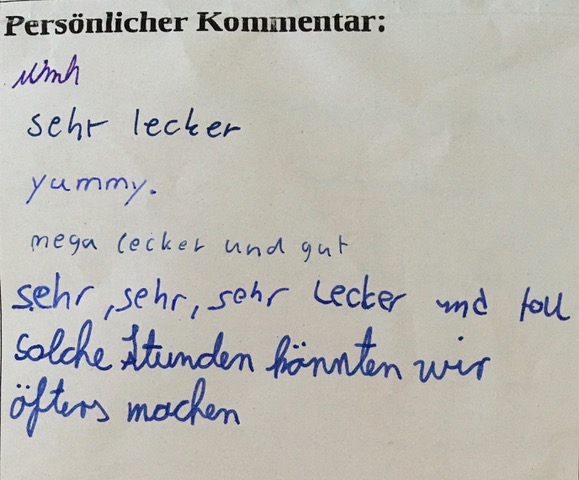 Persönlicher Kommentar:
sehr lecker
yummy.
mega lecker und gut
sehr, sehr, sehr lecker und toll
solche Stunden könnten wir
öfters machen